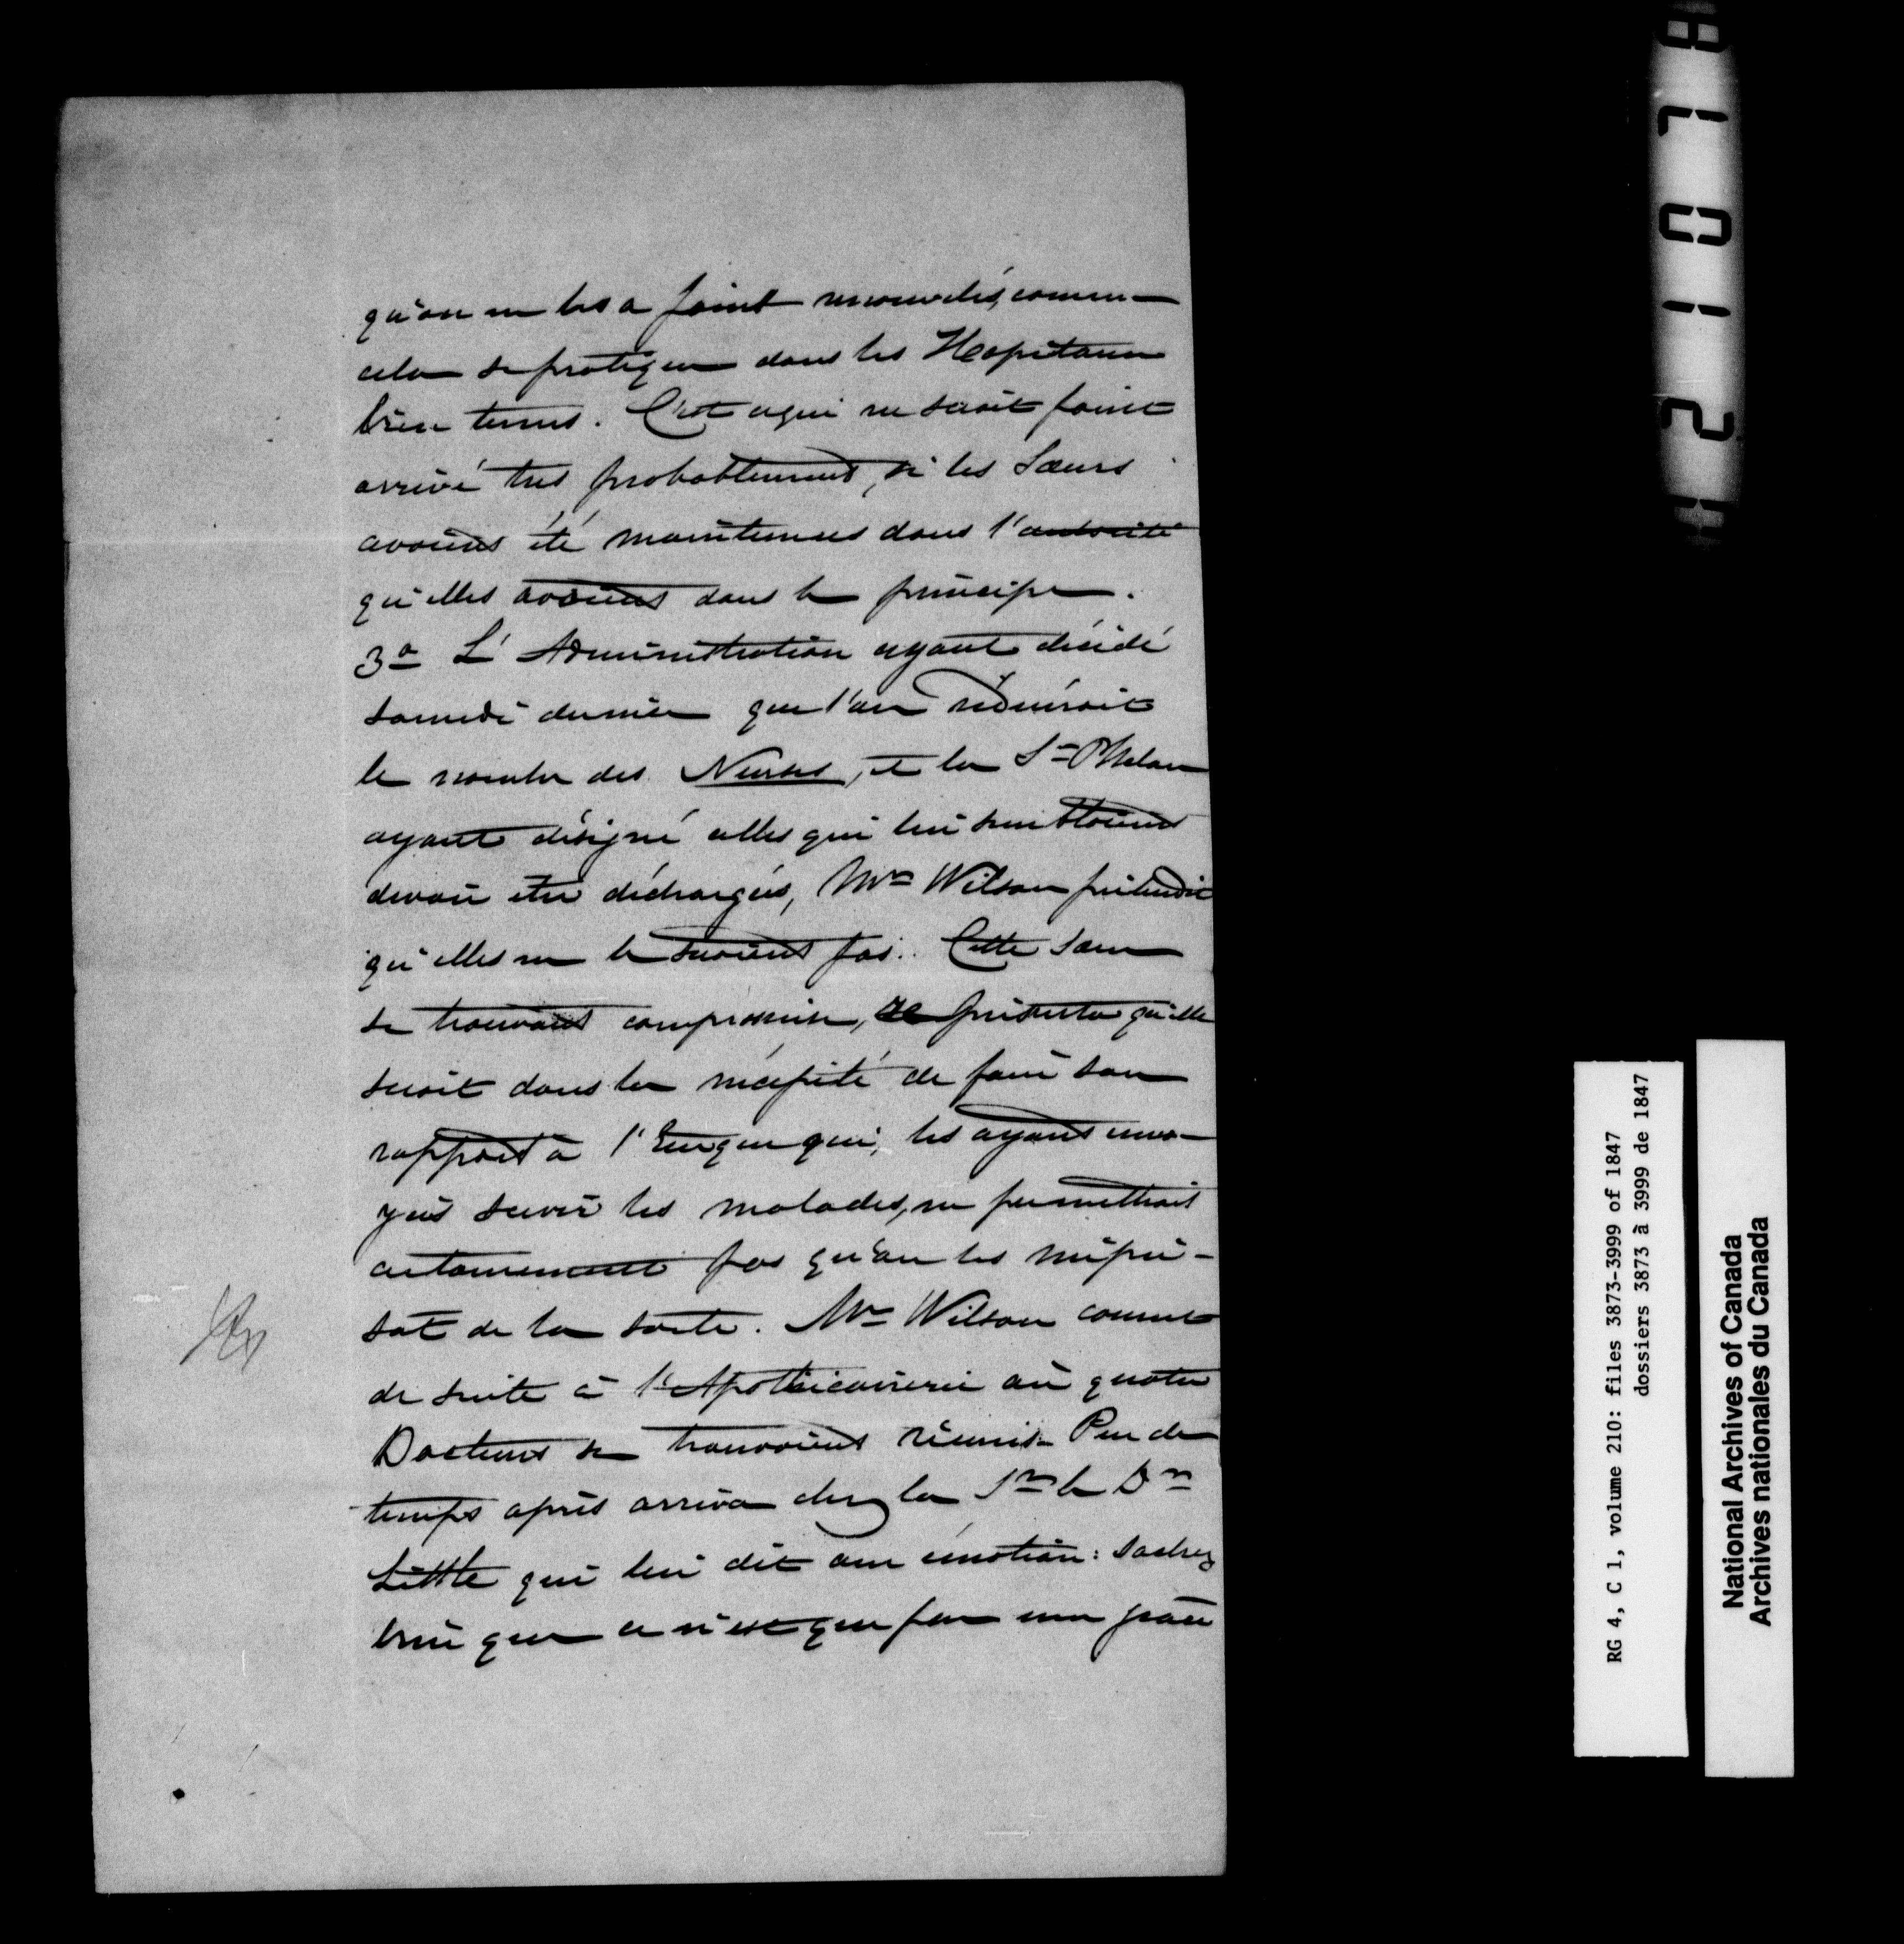 qu'on ne les a point renouvelés, comme
cela se pratique dans les Hopitaux
bien tenus. C'est ce qui ne serait point
arrivé très probablement, si les Sœurs
avaient été maintenues dans l'autorité
qu'elles avaient dans le principe.
3o L'Administration ayant décidé
samedi dernier que l'on réduirait
le nombre des Nurses, et la Sr Phelan
ayant désigné celles qui lui semblaient
devoir être déchargées, Mr Wilson prétendit
qu'elles ne le seraient pas. Cette Sœur
se trouvant compromise, protesta qu'elle
serait dans la nécessité de faire son
rapport à l'Evêque qui, les ayant envo-
yées servir les malades, ne permettrait
certainement pas qu'on les mépri-
sat de la sorte. Mr Wilson courut
de suite à l'Apothicairerie où quatre
Docteurs se trouvaient réunis. Peu de
temps après arriva chez la Sr le Dr
Little qui lui dit avec émotion: Sachez
bien que ce n'est que par une grace
RG 4, C 1, volume 210: files 3873-3999 of 1847
dossiers 3873 à 3999 de 1847
National Archives of Canada
Archives nationales du Canada